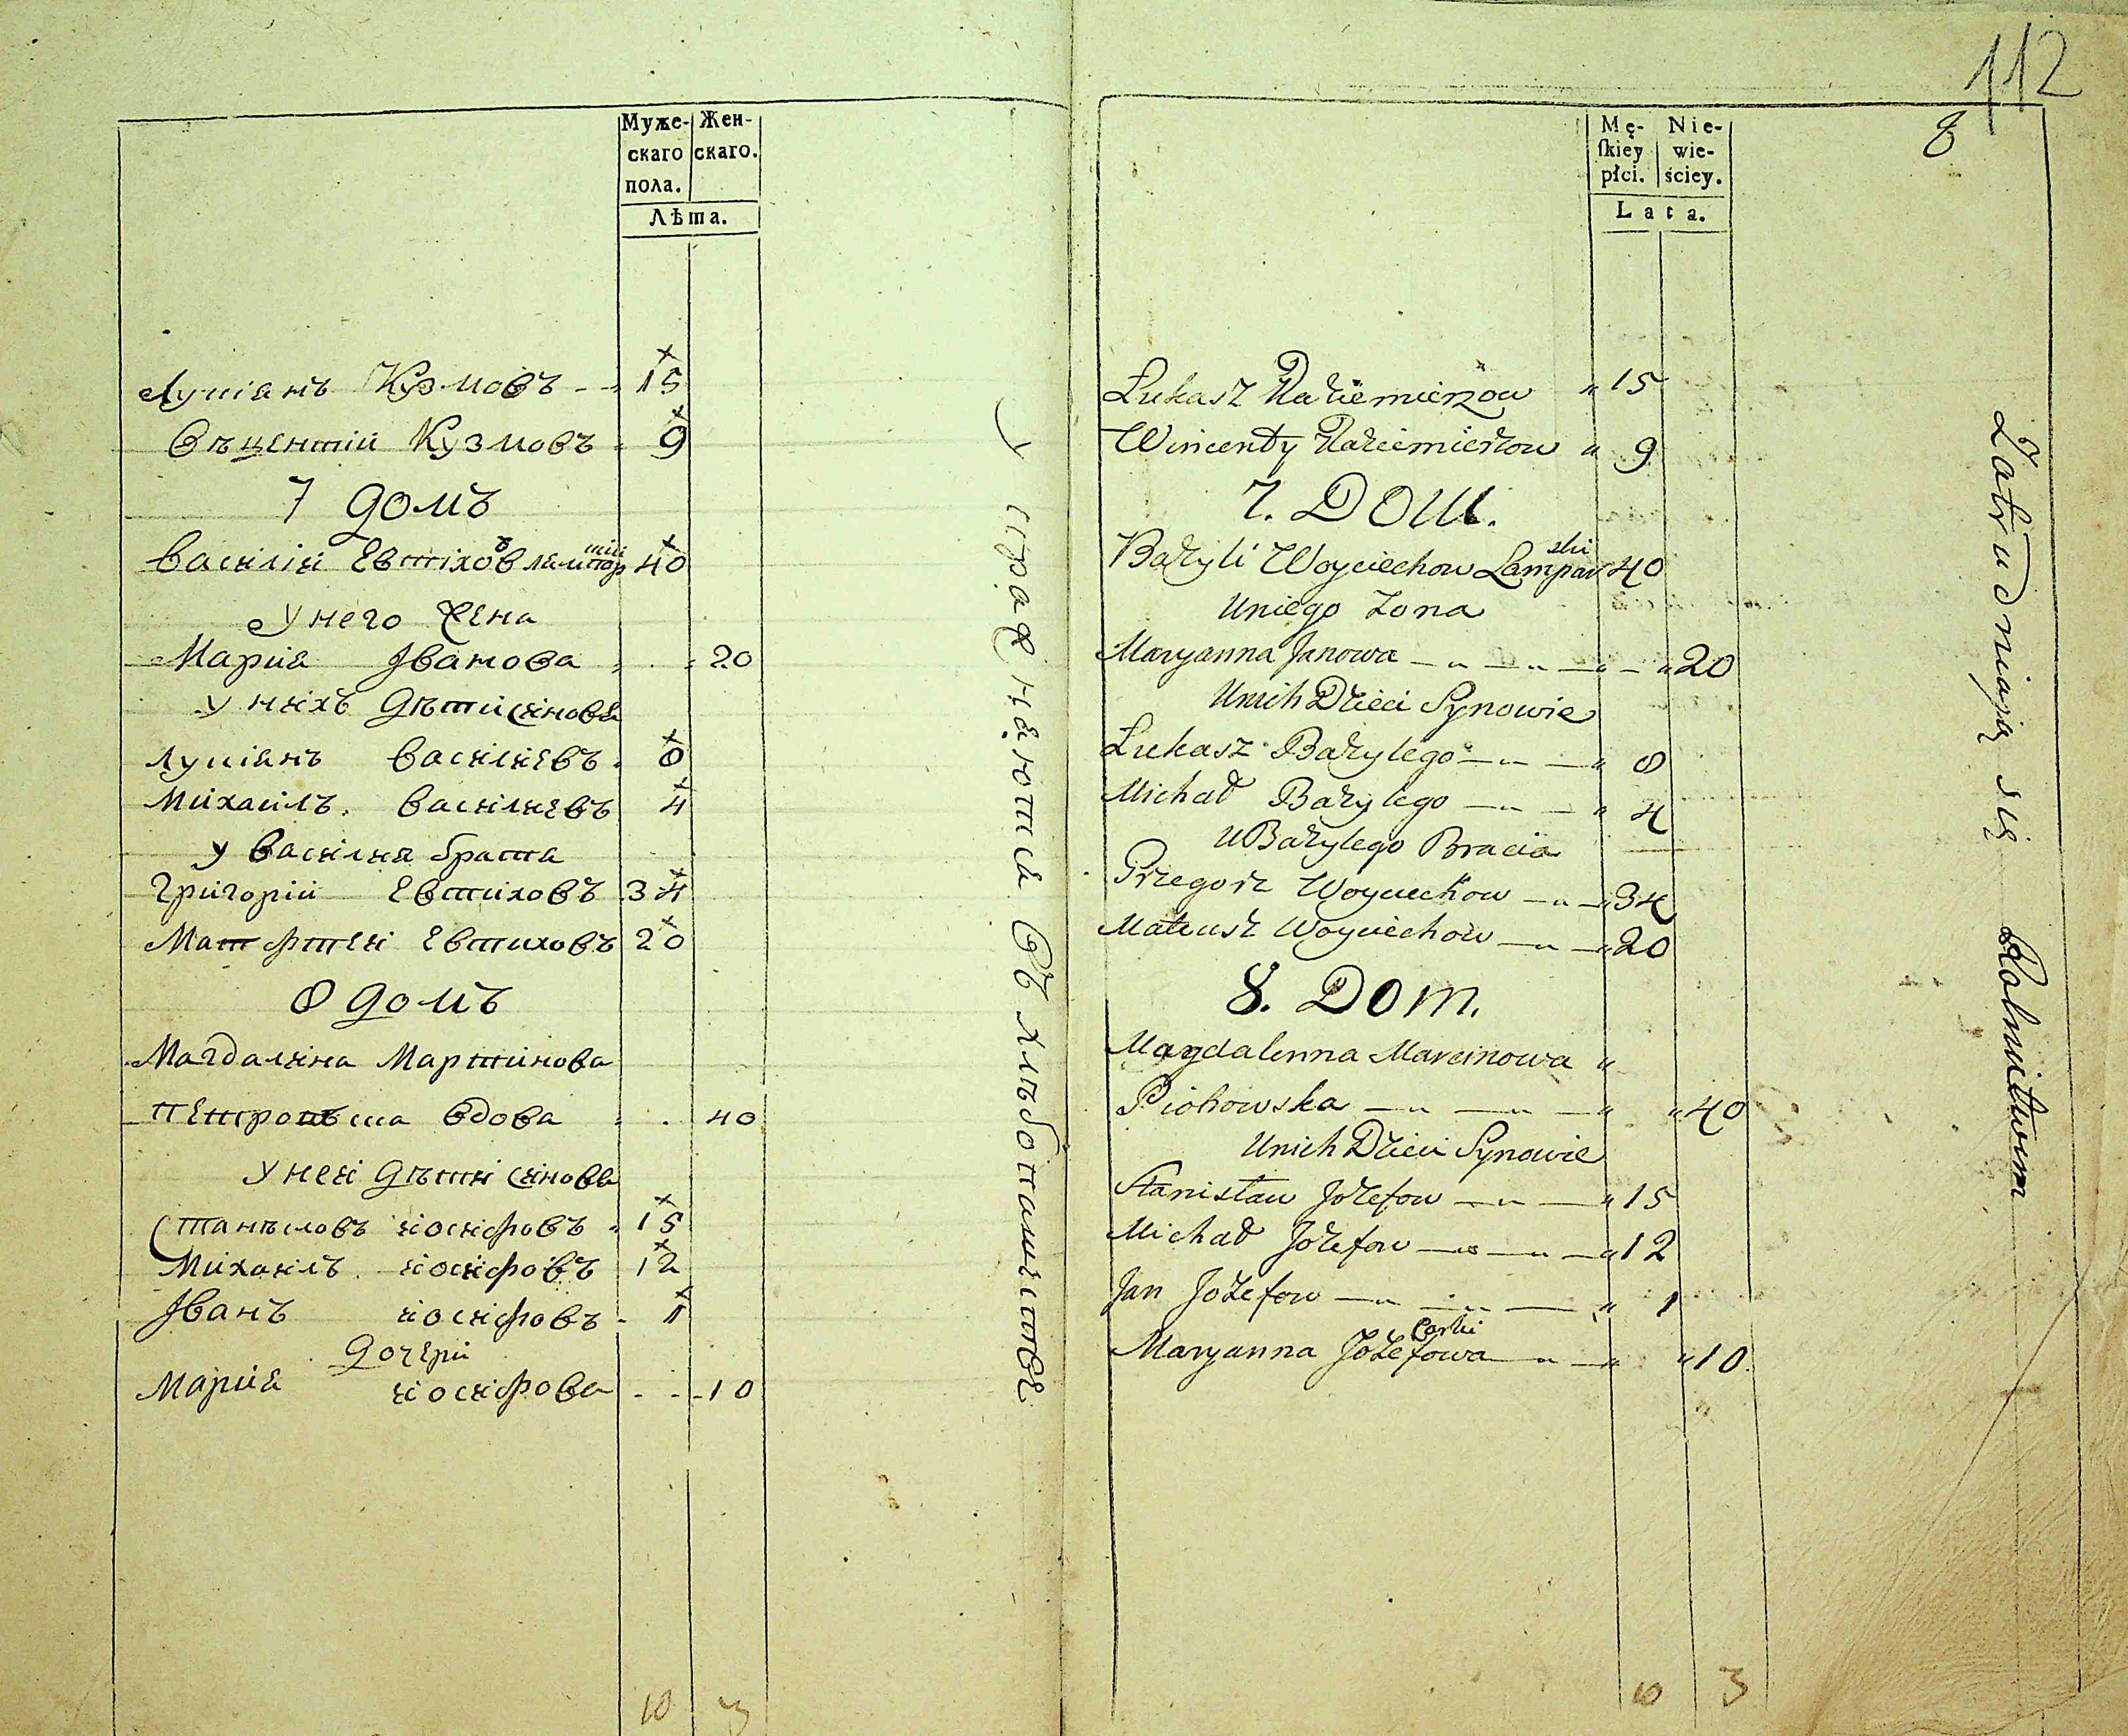 Муже-
скаго
пола.
Жен-
скаго.
Лѣта.
Луціанъ Кузмовъ 15
Вѣцентій Кузмовъ 9
7 домъ
Василій Евтіховъ 40
У него жена
Марія Іванова 20
У ніхъ дѣти сінове
Луціанъ Василіевъ 8
Михаилъ Василіевъ 4
У Василия брата
Григорій Евтиховъ 34
Евтиховъ 20
8 домъ
Магдалина Мартинова
вдова 40
У неі дѣти сінове
Станѣсловъ іосифовъ 15
Михаилъ іосифовъ 12
Іванъ іосифовъ 1
дочери
Марія іосифова 10
10 3
въ хлѣбопашистве
112
8
Mę-
ſkiey
płci.
Nie-
wie-
ściey.
Lata.
Łukasz Kaziemierzow 15
Wincenty Kaziemierzow 9
7. DOM.
Bazyli Woyciechow Lamparski 40
Uniego Zona
Maryanna Janowa 20
Unich Dzieci Synowie
Łukasz Bazylego 8
Michał Bazylego 4
U Bazylego Bracia
Grzegorz Woyciechow 34
Mateusz Woyciechow 20
8. DOM.
Magdalenna Marcinowa
Piohowska 40
Unich Dzieci Synowie
Stanisław Jozefow 15
Michał Jozefow 12
Jan Jozefow 1
Corki
Maryanna Jozefowa 10
10 3
Zatrudniają się Rolnictwem